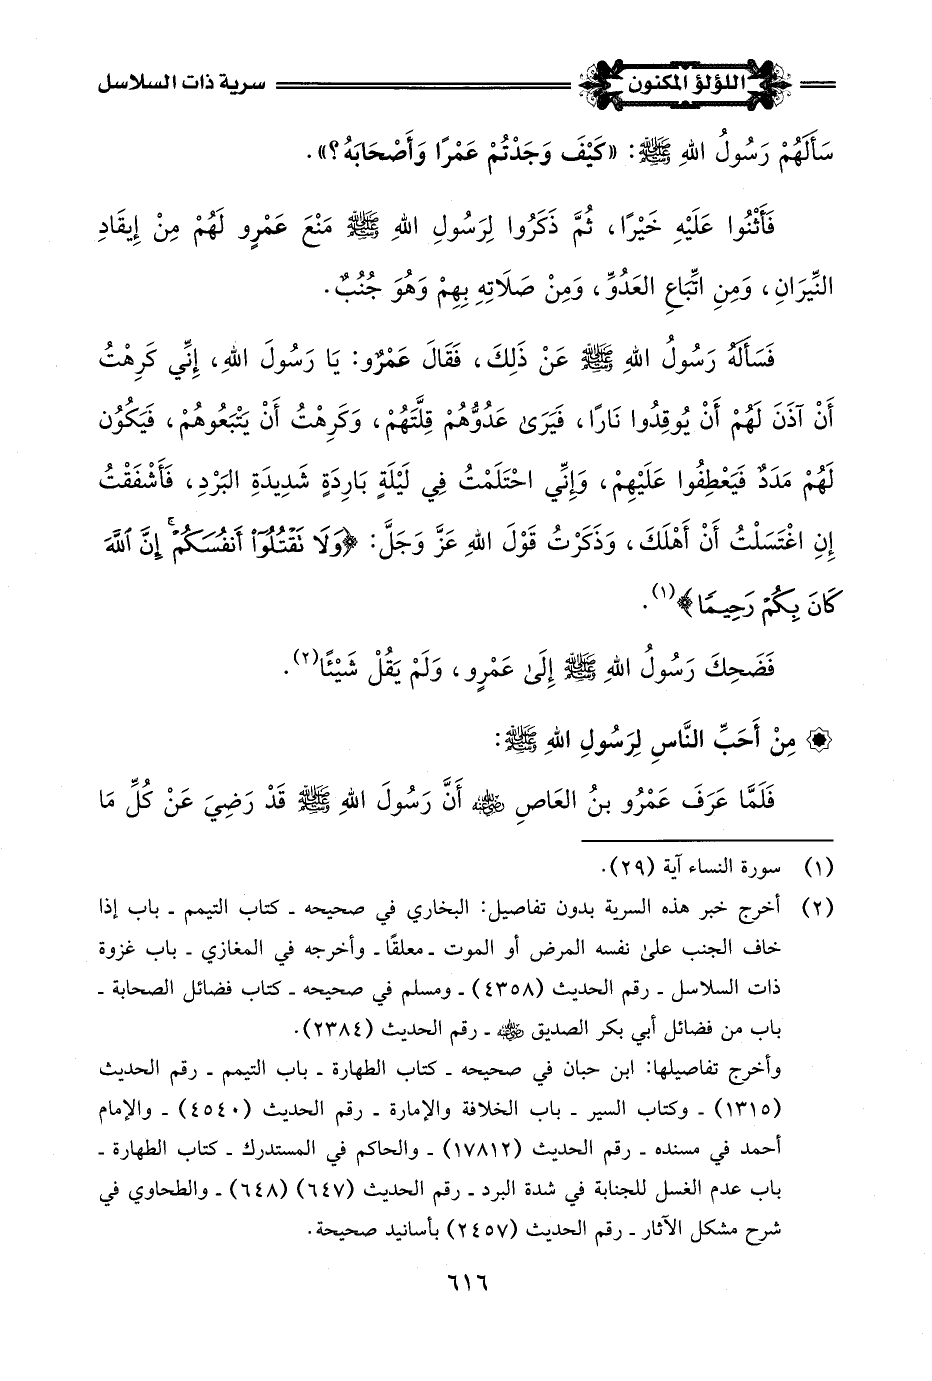 اللؤلؤ المكنون سرية ذات السلاسل
سَأَلَهُمْ رَسُولُ اللهِ ﷺ: «كَيْفَ وَجَدْتُمْ عَمْرًا وَأَصْحَابَهُ؟».
فَأَثْنُوا عَلَيْهِ خَيْرًا، ثُمَّ ذَكَرُوا لِرَسُولِ اللهِ ﷺ مَنْعَ عَمْرٍو لَهُمْ مِنْ إِيقَادِ
النِّيرَانِ، وَمِنِ اتِّبَاعِ العَدُوِّ، وَمِنْ صَلَاتِهِ بِهِمْ وَهُوَ جُنُبٌ.
فَسَأَلَهُ رَسُولُ اللهِ ﷺ عَنْ ذَلِكَ، فَقَالَ عَمْرٌو: يَا رَسُولَ اللهِ، إِنِّي كَرِهْتُ
أَنْ آذَنَ لَهُمْ أَنْ يُوقِدُوا نَارًا، فَيَرَى عَدُوُّهُمْ قِلَّتَهُمْ، وَكَرِهْتُ أَنْ يَتْبَعُوهُمْ، فَيَكُون
لَهُمْ مَدَدٌ فَيَعْطِفُوا عَلَيْهِمْ، وَإِنِّي احْتَلَمْتُ فِي لَيْلَةٍ بَارِدَةٍ شَدِيدَةِ البَرْدِ، فَأَشْفَقْتُ
إِنِ اغْتَسَلْتُ أَنْ أَهْلَكَ، وَذَكَرْتُ قَوْلَ اللهِ عَزَّ وَجَلَّ: ﴿وَلَا نَقْتُلُوٓا۟ أَنفُسَكُمْ ۚ إِنَّ ٱللَّهَ
كَانَ بِكُمْ رَحِيمًا﴾(١).
فَضَحِكَ رَسُولُ اللهِ ﷺ إِلَى عَمْرٍو، وَلَمْ يَقُلْ شَيْئًا(٢).
مِنْ أَحَبِّ النَّاسِ لِرَسُولِ اللهِ ﷺ:
فَلَمَّا عَرَفَ عَمْرُو بنُ العَاصِ رضي الله عنه أَنَّ رَسُولَ اللهِ ﷺ قَدْ رَضِيَ عَنْ كُلِّ مَا
(١) سورة النساء آية (٢٩).
(٢) أخرج خبر هذه السرية بدون تفاصيل: البخاري في صحيحه ـ كتاب التيمم ـ باب إذا
خاف الجنب على نفسه المرض أو الموت ـ معلقًا ـ وأخرجه في المغازي ـ باب غزوة
ذات السلاسل ـ رقم الحديث (٤٣٥٨) ـ ومسلم في صحيحه ـ كتاب فضائل الصحابة ـ
باب من فضائل أبي بكر الصديق رضي الله عنه ـ رقم الحديث (٢٣٨٤).
وأخرج تفاصيلها: ابن حبان في صحيحه ـ كتاب الطهارة ـ باب التيمم ـ رقم الحديث
(١٣١٥) ـ وكتاب السير ـ باب الخلافة والإمارة ـ رقم الحديث (٤٥٤٠) ـ والإمام
أحمد في مسنده ـ رقم الحديث (١٧٨١٢) ـ والحاكم في المستدرك ـ كتاب الطهارة ـ
باب عدم الغسل للجنابة في شدة البرد ـ رقم الحديث (٦٤٧) (٦٤٨) ـ والطحاوي في
شرح مشكل الآثار ـ رقم الحديث (٢٤٥٧) بأسانيد صحيحة.
٦١٦